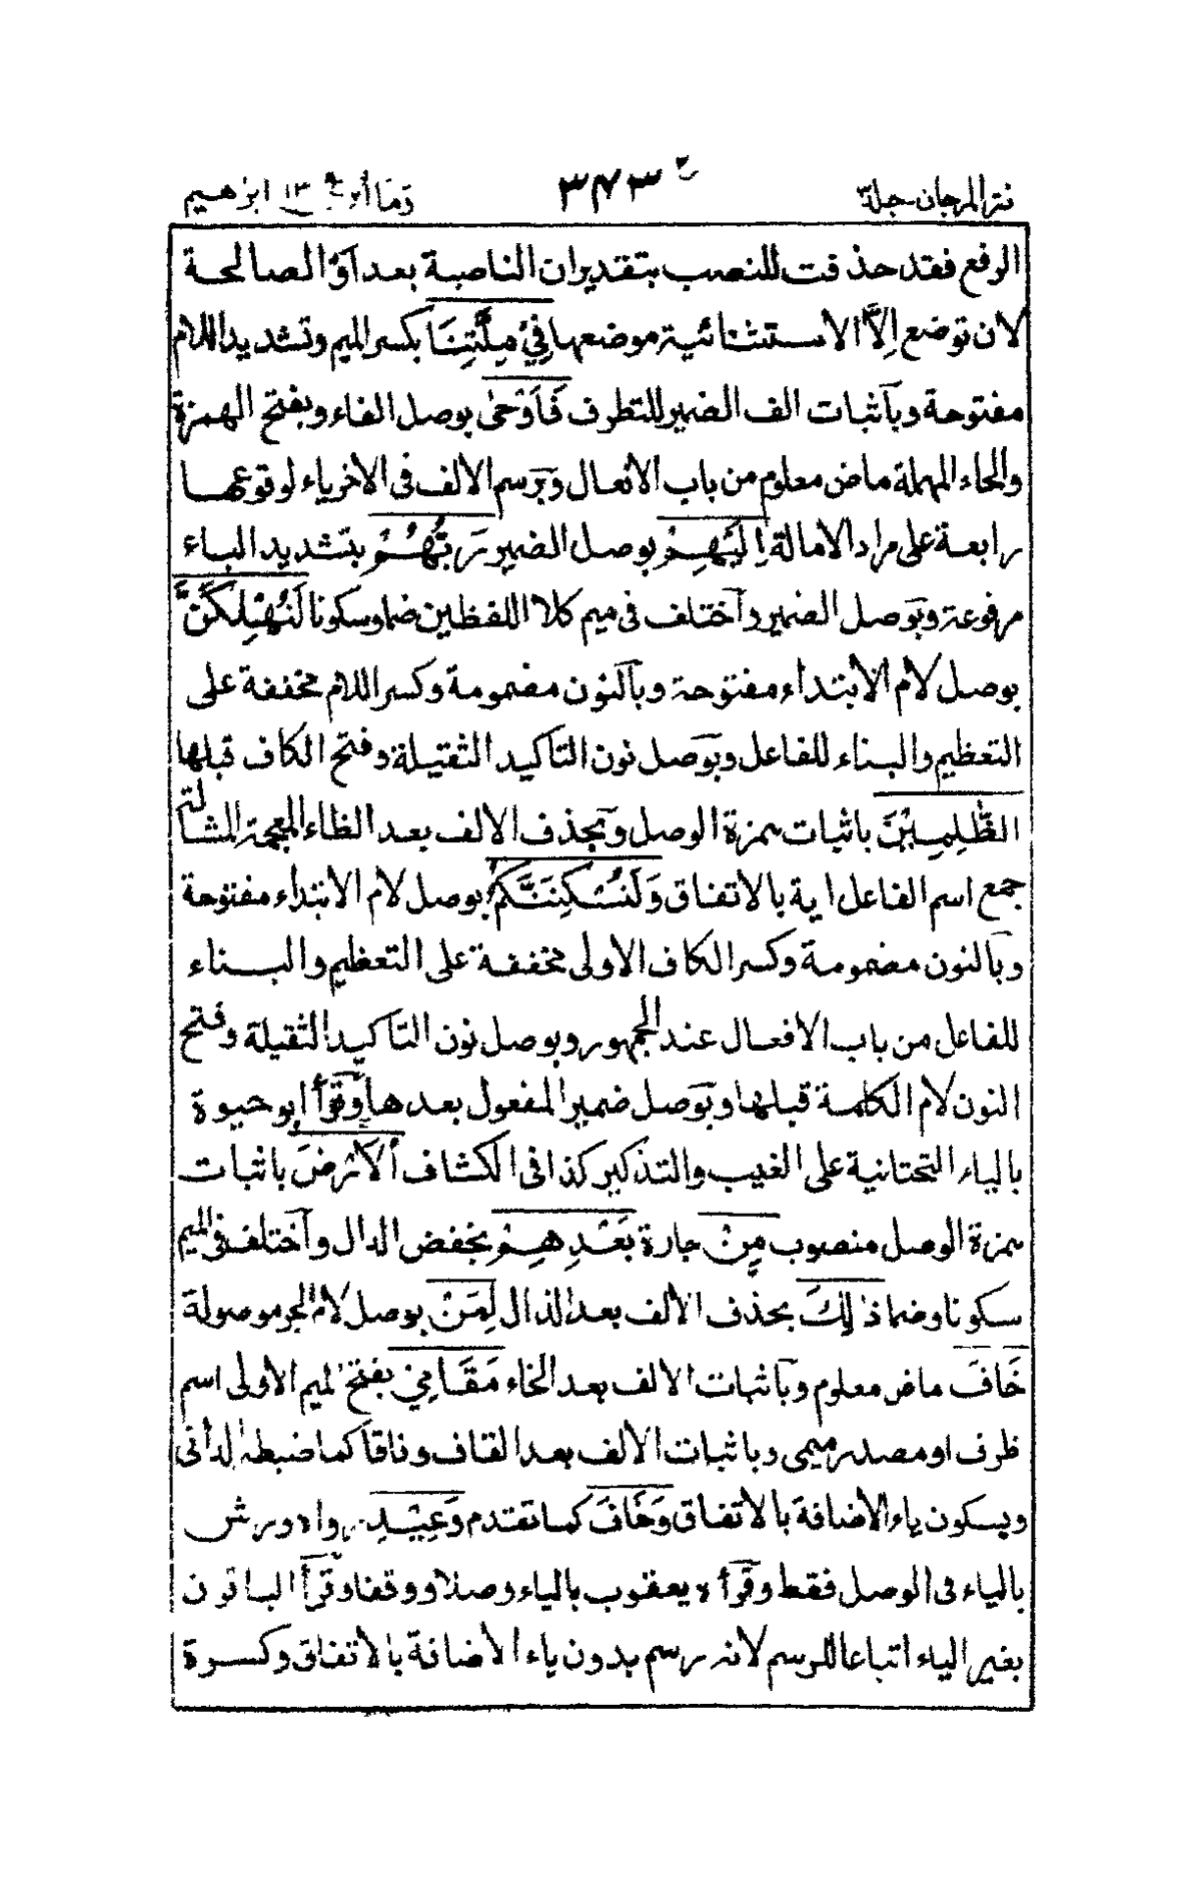 نثر المرجان جلد٣ ٣٧٣ وما أبرئ ١٣ ابرٰهيم
الرفع فقد حذفت للنصب بتقدير ان الناصبة بعد أو الصالحة
لان توضع اِلَّا الاستثنائية موضعها فِيْ مِلَّتِنَا بكسر الميم وتشديد اللام
مفتوحة وبآثبات الف الضمير للتطرف فَاَوْحٰى بوصل الفاء وبفتح الهمزة
والحاء المهملة ماض معلوم من باب الافعال وبرسم الالف في الاخر ياء لوقوعها
رابعة على مراد الامالة اِلَيْهِمْ بوصل الضمير رَبُّهُمْ بتشديد الباء
مرفوعة وبوصل الضمير وآختلف في ميم كلا اللفظين ضما وسكونا لَنُهْلِكَنَّ
بوصل لام الابتداء مفتوحة وبآلنون مضمومة وكسر اللام مخففة على
التعظيم والبناء للفاعل وبوصل نون التاكيد الثقيلة وفتح الكاف قبلها
الظّٰلِمِيْنَ باثبات همزة الوصل وبحذف الالف بعد الظاء المعجمة المشالة
جمع اسم الفاعل اية بالاتفاق وَلَنُسْكِنَنَّكُمْ بوصل لام الابتداء مفتوحة
وبآلنون مضمومة وكسر الكاف الاولى مخففة على التعظيم والبناء
للفاعل من باب الافعال عند الجمهور وبوصل نون التاكيد الثقيلة وفتح
النون لام الكلمة قبلها وبوصل ضمير المفعول بعدها وقرأ ابو حيوة
بالياء التحتانية على الغيب والتذكير كذا في الكشاف الْاَرْضَ باثبات
همزة الوصل منصوب مِنْ جارة بَعْدِهِمْ بخفض الدال وآختلف في الميم
سكونا وضما ذٰلِكَ بحذف الالف بعد الذال لِمَنْ بوصل لام الجر موصولة
خَافَ ماض معلوم وبآثبات الالف بعد الخاء مَقَامِيْ بفتح الميم الاولى اسم
ظرف او مصدر ميمى وباثبات الالف بعد القاف وفاقا كما ضبطه الدانى
وبسكون ياء الاضافة بالاتفاق وَخَافَ كما تقدم وَعِيْدِ رواه ورش
بالياء في الوصل فقط وقرأه يعقوب بالياء وصلا ووقفا وقرأ الباقون
بغير الياء اتباعا للرسم لانه رسم بدون ياء الاضافة بالاتفاق وكسرة